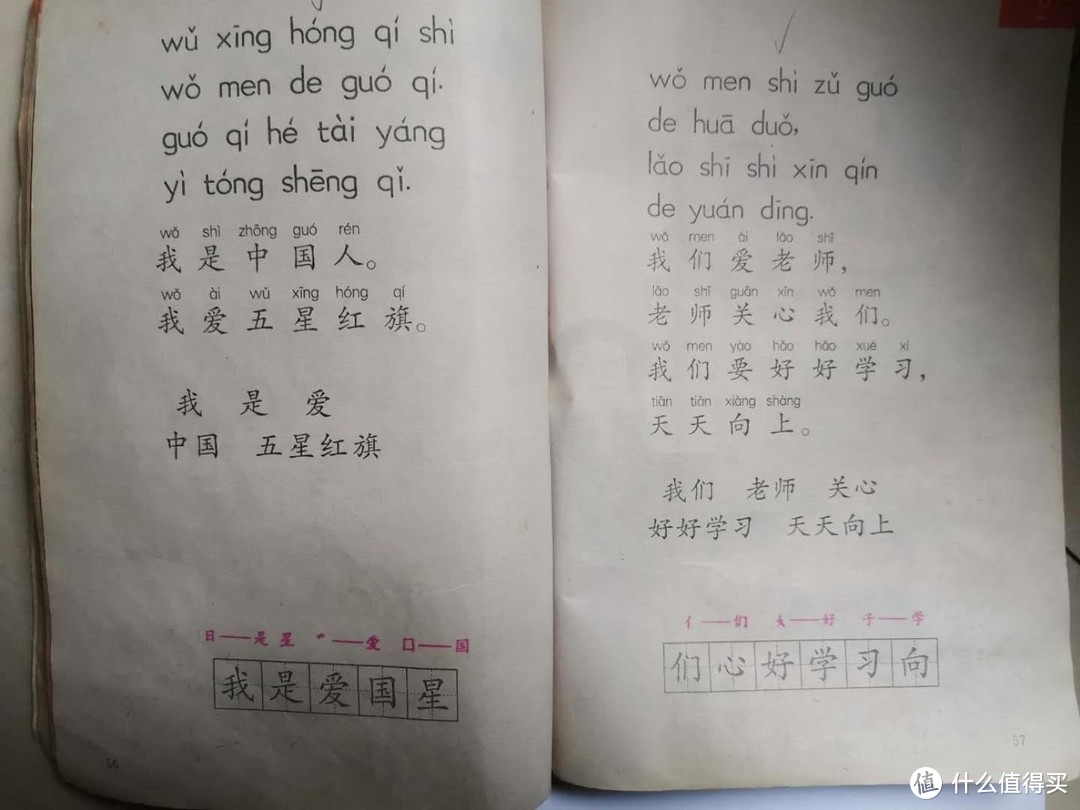 wǔ xīng hóng qí shì
wǒ men de guó qí.
guó qí hé tài yáng
yì tóng shēng qǐ.
wǒ shì zhōng guó rén
我是中国人。
wǒ ài wǔ xīng hóng qí
我爱五星红旗。
我 是 爱
中国 五星红旗
日——是星 爫——爱 囗——国
我是爱国星
56
2
wǒ men shì zǔ guó
de huā duǒ,
lǎo shī shì xīn qín
de yuán dīng.
wǒ men ài lǎo shī
我们爱老师，
lǎo shī guān xīn wǒ men
老师关心我们。
wǒ men yào hǎo hǎo xué xí
我们要好好学习，
tiān tiān xiàng shàng
天天向上。
我们 老师 关心
好好学习 天天向上
亻——们 女——好 子——学
们心好学习向
57
值 什么值得买